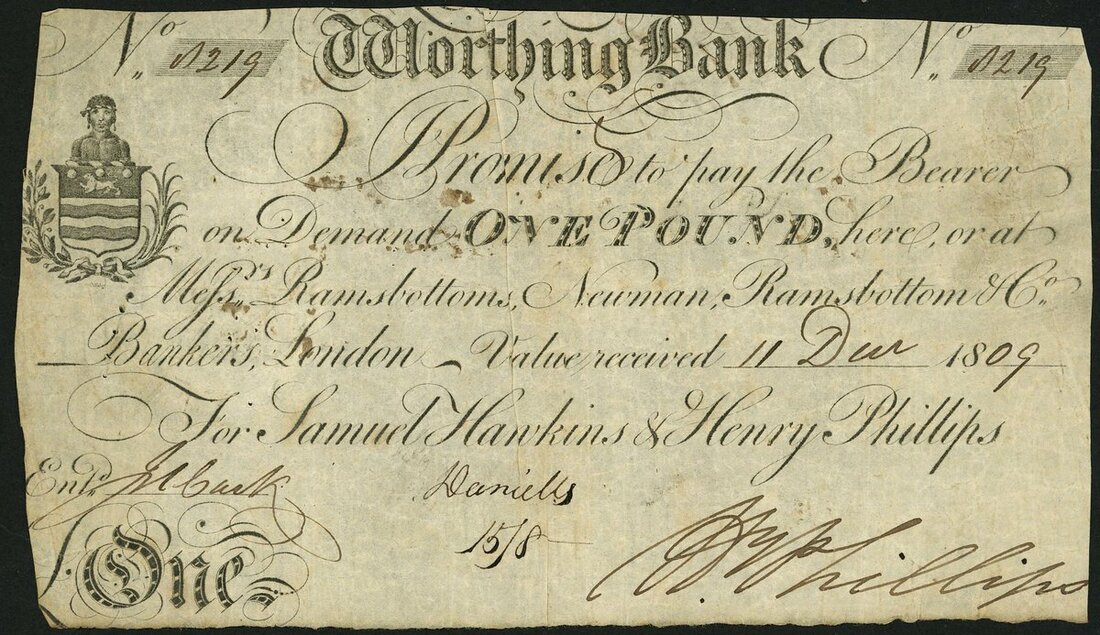 No. Worthing Bank No.
I Promise to pay the Bearer
on Demand ONE POUND, here, or at
Messrs. Ramsbottoms, Newman, Ramsbottom & Co.
Bankers, London Value received 11 Decr 1809
For Samuel Hawkins & Henry Phillips
Entd.
Daniells
15/8
One
Hy Phillips